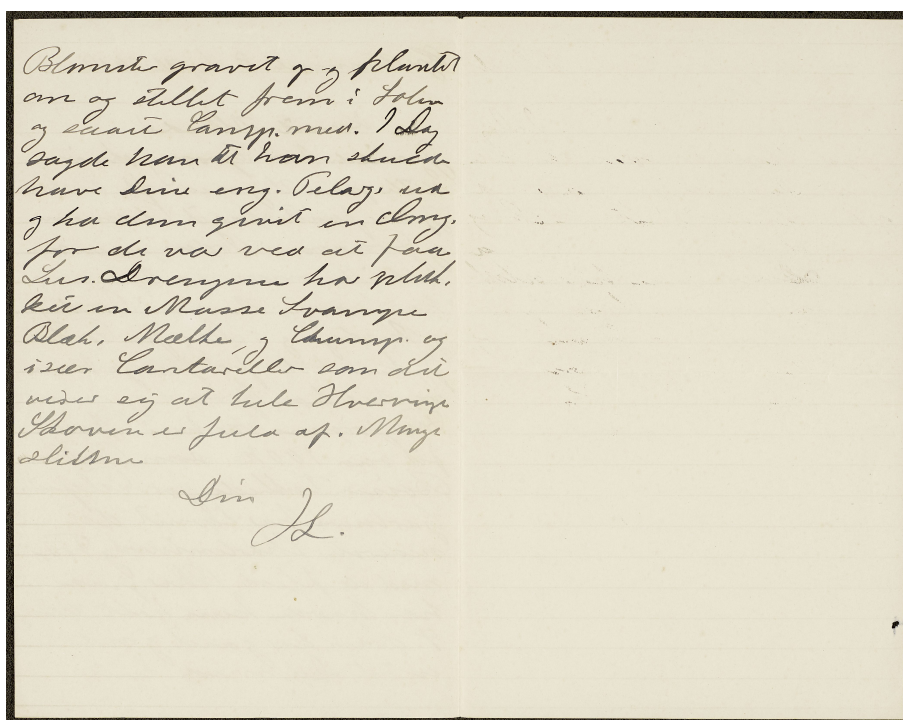 Blomster gravet og og plantet
om og stillet frem i Solen
og saaet Camp. med. I Dag
sagde han at han skulde
have Dine eng. Pelarg. ud
og ha dem givet en Omg.
for de var ved at faa
Lus. Drengene har pluk-
ket en Masse Svampe
Blæk, Mælke, og Champ. og
især Cantareller som det
viser sig at hele Hverringe
Skoven er fuld af. Mange
Din
JL.